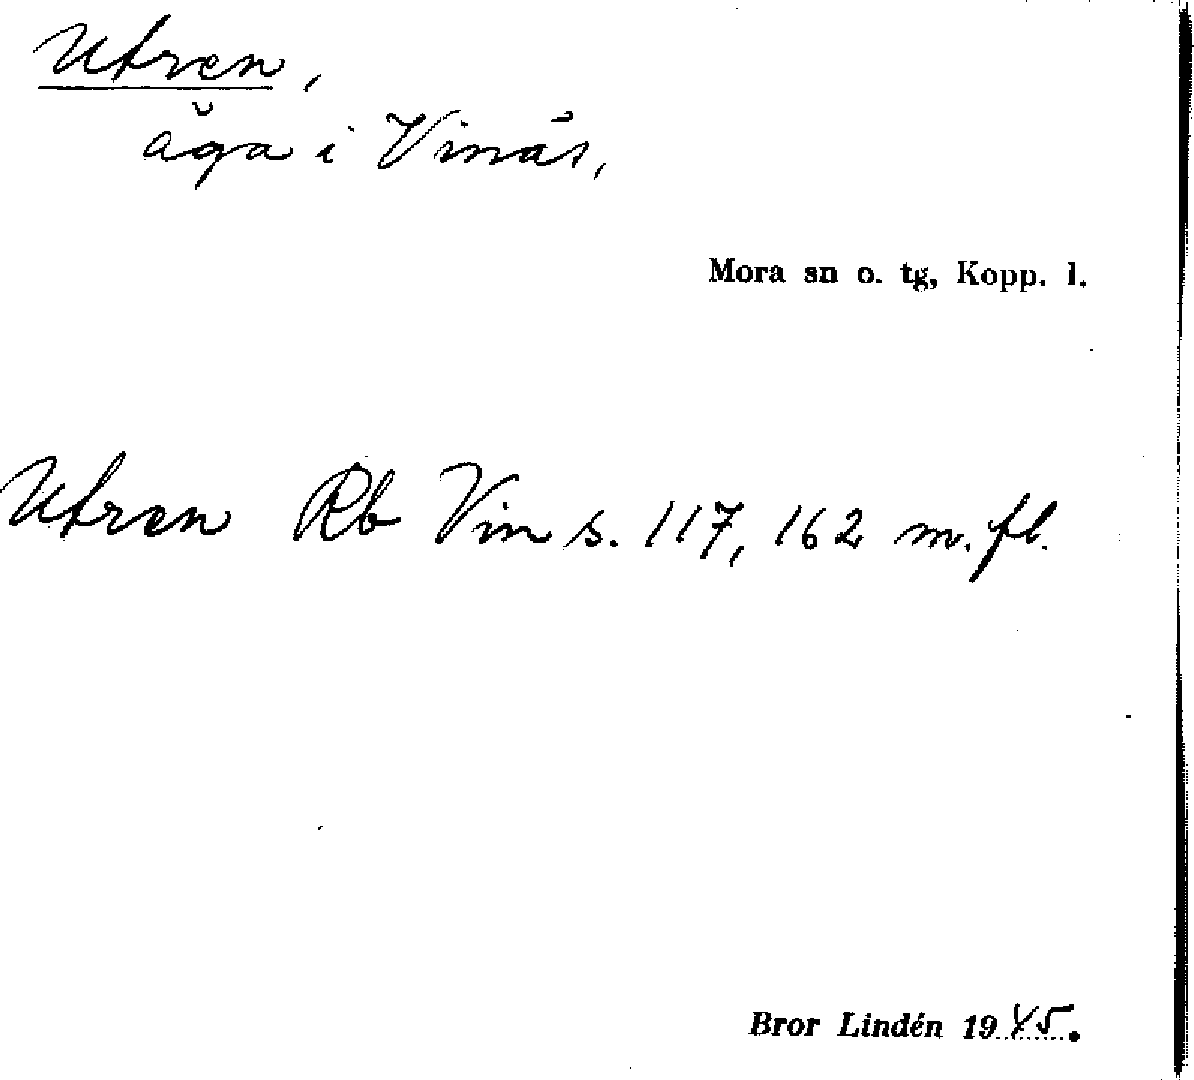 Utren,
äga i Vinäs,
Mora sn o. tg, Kopp. l.
Utren Rb Vin s. 117, 162 m. fl.
Bror Lindén 1945.